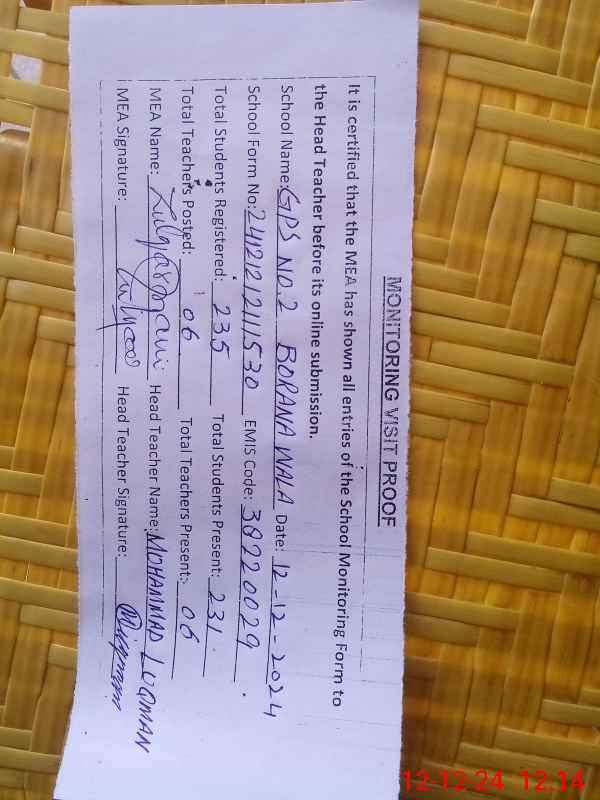 MONITORING VISIT PROOF
It is certified that the MEA has shown all entries of the School Monitoring Form to
the Head Teacher before its online submission.
School Name: GPS NO.2 BORANA WALA Date: 12-12-2024
School Form No: 2412121211530 EMIS Code: 38220029
Total Students Registered: 235 Total Students Present: 231
Total Teachers Posted: 06 Total Teachers Present: 06
MEA Name: Head Teacher Name: MOHAMMAD LUQMAN
MEA Signature: Head Teacher Signature:
12-12-24 12:14